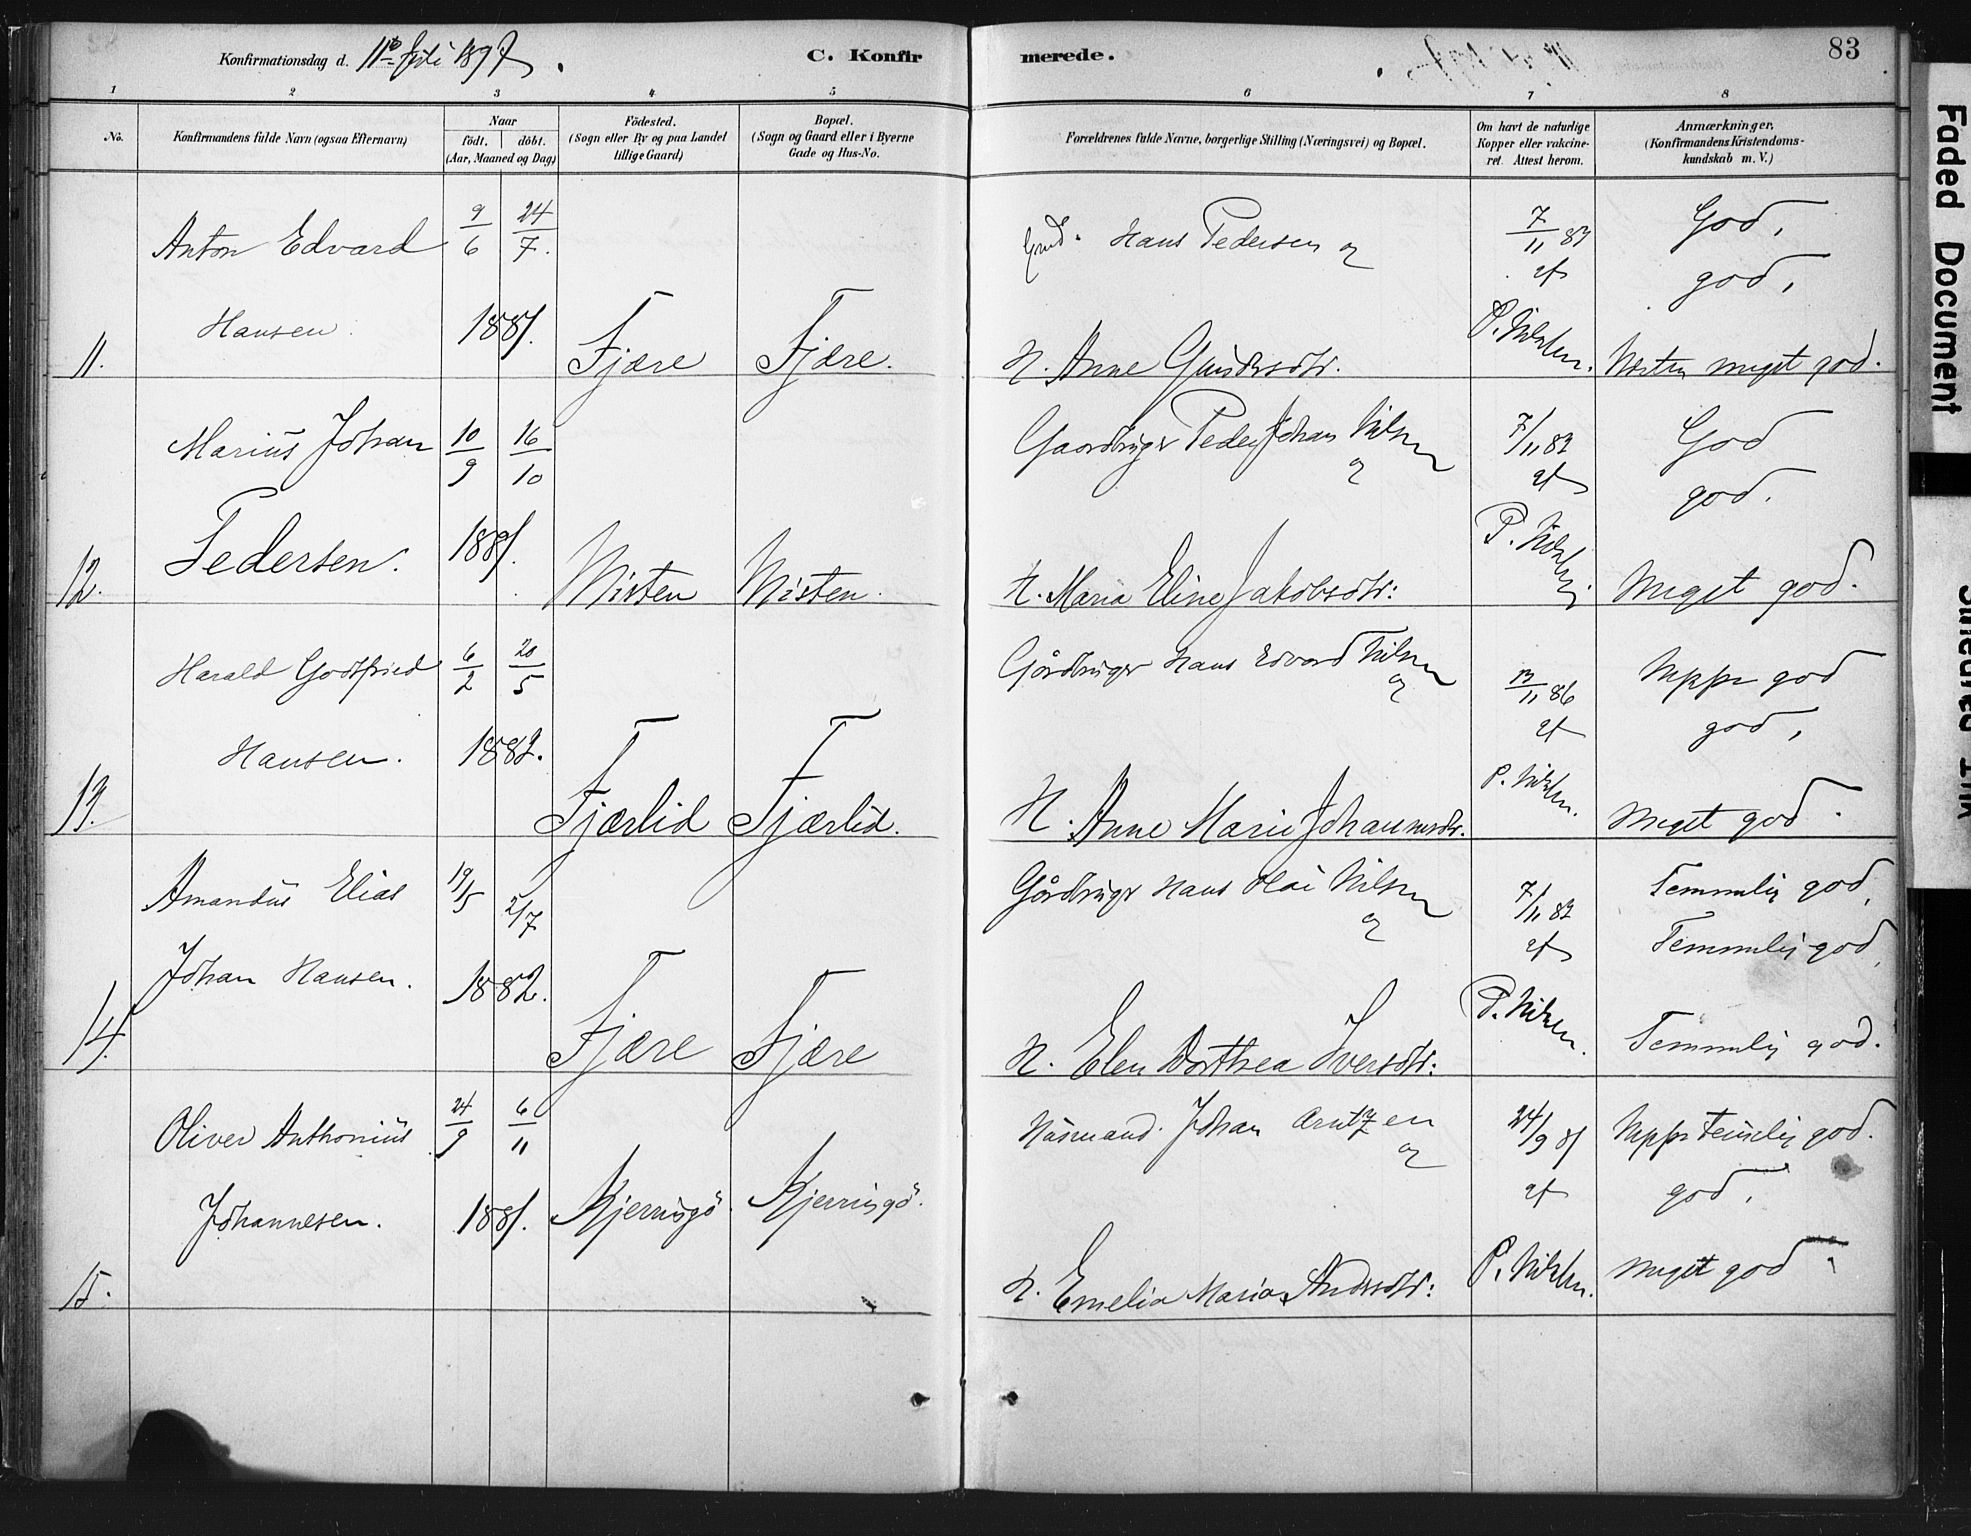 Konfirmationsdag d. 11te Juli 1897.
C. Konfir
merede.
83
1 2 3 4 5 6 7 8
No.
Konfirmandens fulde Navn (ogsaa Efternavn)
Naar
födt. döbt.
(Aar, Maaned og Dag)
Födested.
(Sogn eller By og paa Landet
tillige Gaard)
Bopæl.
(Sogn og Gaard eller i Byerne
Gade og Hus-No.
Forældrenes fulde Navne, borgerlige Stilling (Næringsvei) og Bopæl.
Om havt de naturlige
Kopper eller vakcine-
ret. Attest herom.
Anmærkninger,
(Konfirmandens Kristendoms-
kundskab m. V.)
Anton Edvard 9/6 24/7. Hans Pedersen og 7/11 87 God,
af god,
Hansen. 1881.
11. Fjære Fjære. H. Anne Gundersdtr. Næsten meget god.
Marius Johan 10/9 16/10 Gaardbruger Peder Johan Nilsen og 7/11 87 God
af god.
Pedersen. 1881.
12. Misten Misten. H. Maria Eline Jakobsdtr: Meget god.
Harald Godtfried 6/2 20/5 Gårdbruger Hans Edvard Nilsen og 13/11 86 Neppe god
af god,
Hansen. 1882.
13. Fjærlid Fjærlid. H. Anne Marie Johannesdtr. Meget god.
Amandus Elias 19/5 2/7 Gårdbruger Hans Olai Nilsen og 7/11 87 Temmelig god,
af Temmelig god,
Johan Hansen. 1882.
14. Fjære Fjære H. Elen Dorthea Iversdtr: Temmelig god.
Oliver Anthonius 24/9 6/11 Husmand. Johan Arntzen og 24/9 Neppe temmelig god.
af god,
Johannesen. 1881. Kjerringö Kjerringö.
15. H. Emelia Maria Andersdtr: meget god
Faded Document